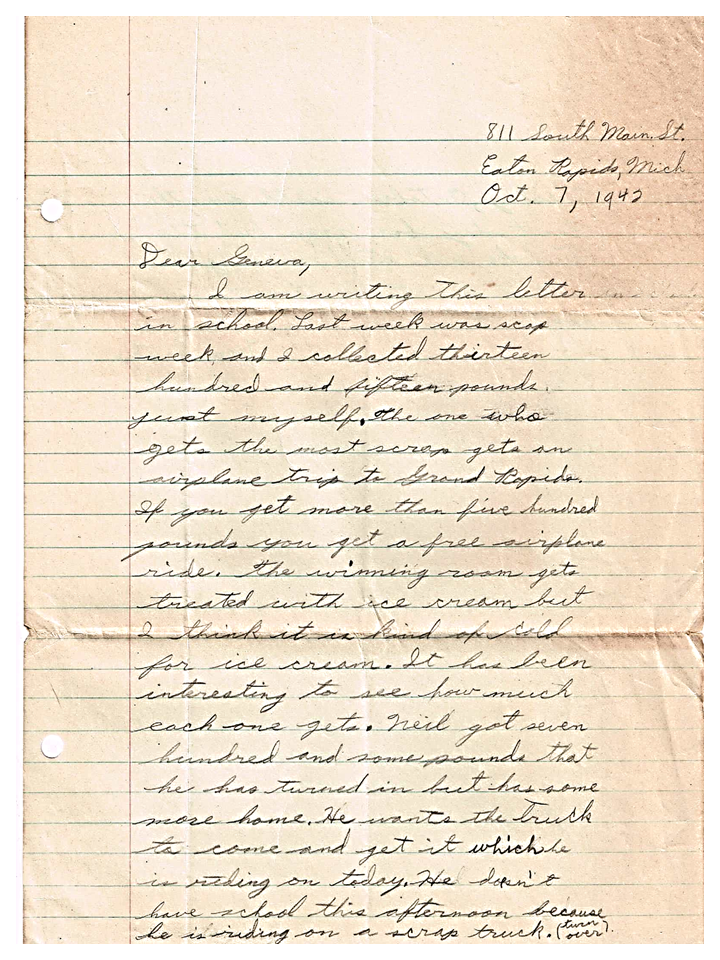 811 South Main St.
Eaton Rapids, Mich
Oct. 7, 1942
Dear Geneva,
I am writing this letter
in school. Last week was scap
week and I collected thirteen
hundred and fifteen pounds
just myself. The one who
gets the most scrap gets an
airplane trip to Grand Rapids.
If you get more than five hundred
pounds you get a free airplane
ride. The winning room gets
treated with ice cream but
I think it is kind of cold
for ice cream. It has been
interesting to see how much
each one gets. Neil got seven
hundred and some pounds that
he has turned in but has some
more home. He wants the truck
to come and get it which he
is riding on today. He doesn't
have school this afternoon because
he is riding on a scrap truck. (turn
over).